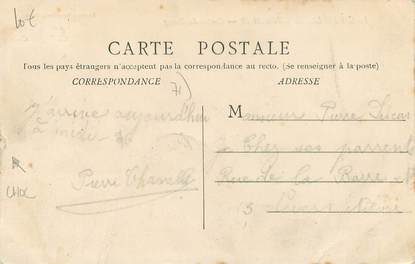 10€
CARTE POSTALE
Tous les pays étrangers n'acceptent pas la correspondance au recto. (Se renseigner à la poste)
CORRESPONDANCE
ADRESSE
71)
j'arrive aujourdhui
à midi
Pierre
M onsieur Pierre
Chez ses parrents
Rue de la Barre
CHOC